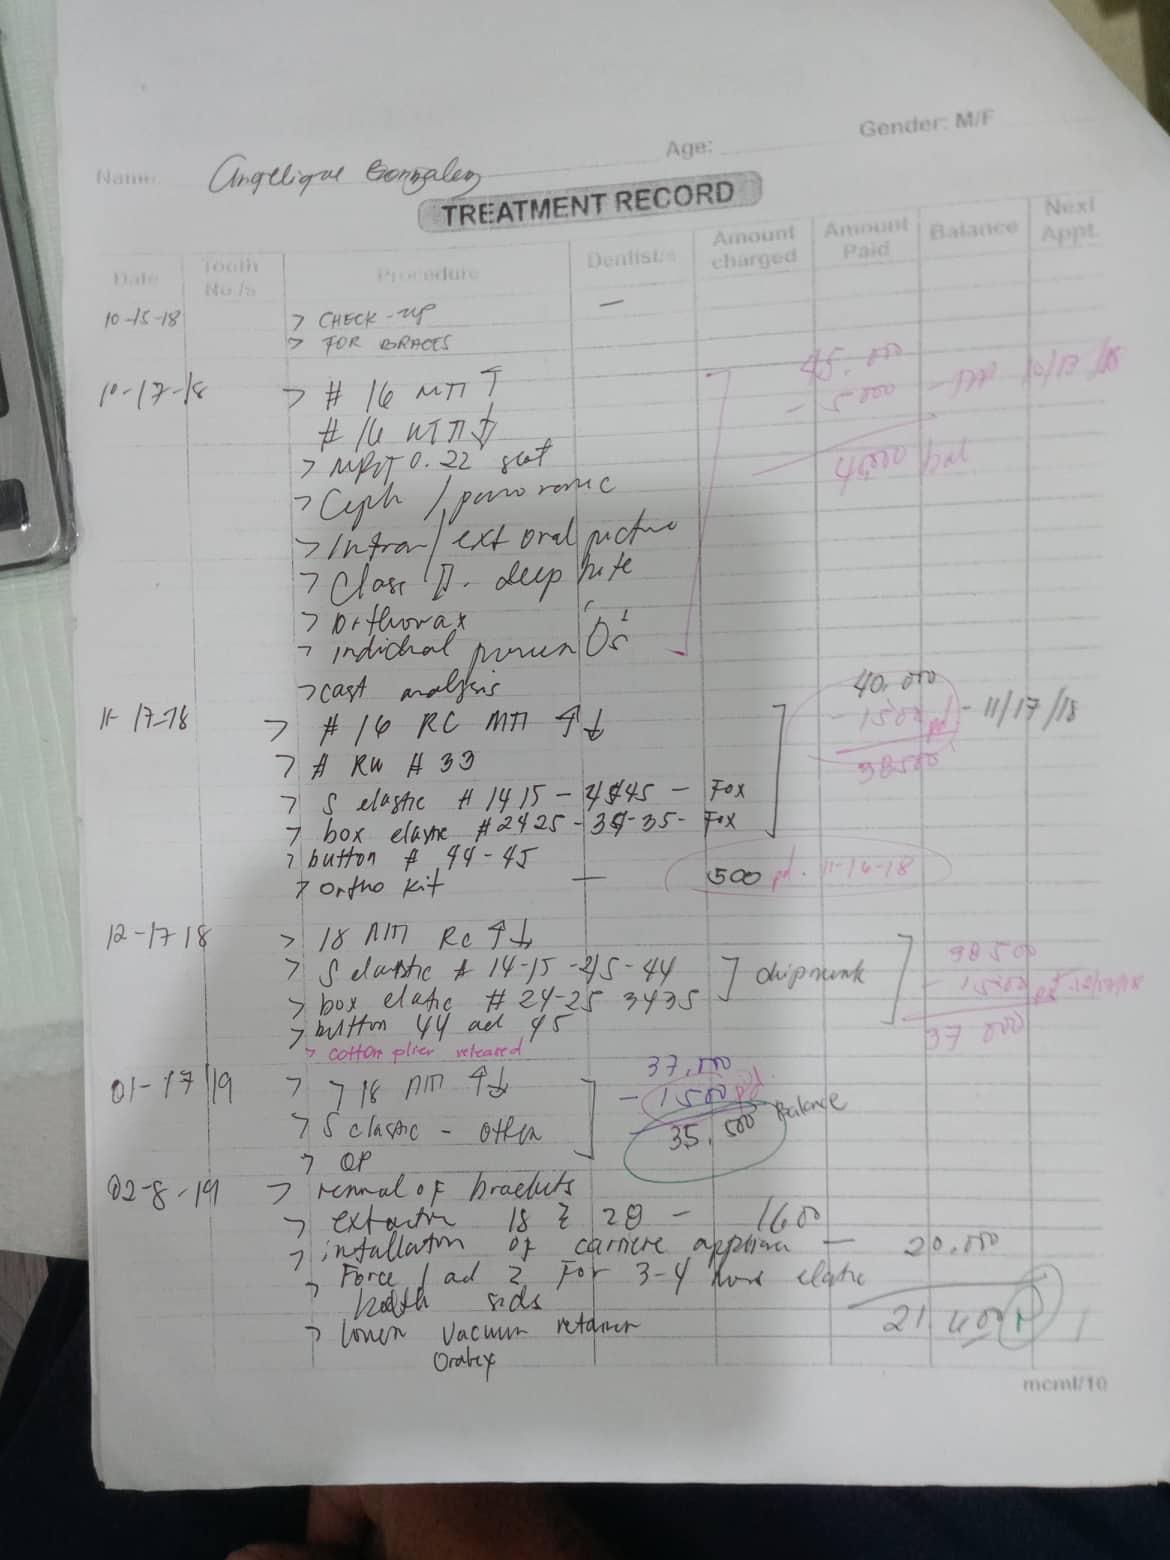 Name: Angelique Gonzalez Age: Gender: M/F
TREATMENT RECORD
Date Tooth No./s Procedure Dentist/s Amount charged Amount Paid Balance Next Appt.
10-15-18 > CHECK-up —
> FOR BRACES
10-17-18 > # 16 ↑ 45,000
# 16 ↓ - 5,000 - 10/17/18
> 0.22 slot 40,000 bal
> Ceph / panoramic
> Intra / ext oral picture
> Class II. deep bite
> Orthorax
> cast analysis 40,000
11-17-18 > # 16 RC ↑↓ - 1500 pd - 11/17/18
> # RW # 33 38500
> S elastic # 1415 - - Fox
> box elastic #2425 - 34-35 - Fox
> button # 44-45
> ortho kit — 500 pd. 11-16-18
12-17 18 > 18 RC ↑↓ 38500
> S elastic # 14-15 -45-44 chipmunk - 1500 pd 12/17/18
> box elatic # 24-25 3435 37 000
> button 44 ad 45
> cotton plier released
01-17 19 > > 18 ↑↓ 37,000
- 1500 pd.
> S elastic - otter 35,500 Balance
> OP
02-8-19 > of brackets
> 18 & 28 - 1600
> of carriere — 20,000
> Force 1 ad 2 For 3-4
sids 21,
> lower vacuum retainer
mcml/10